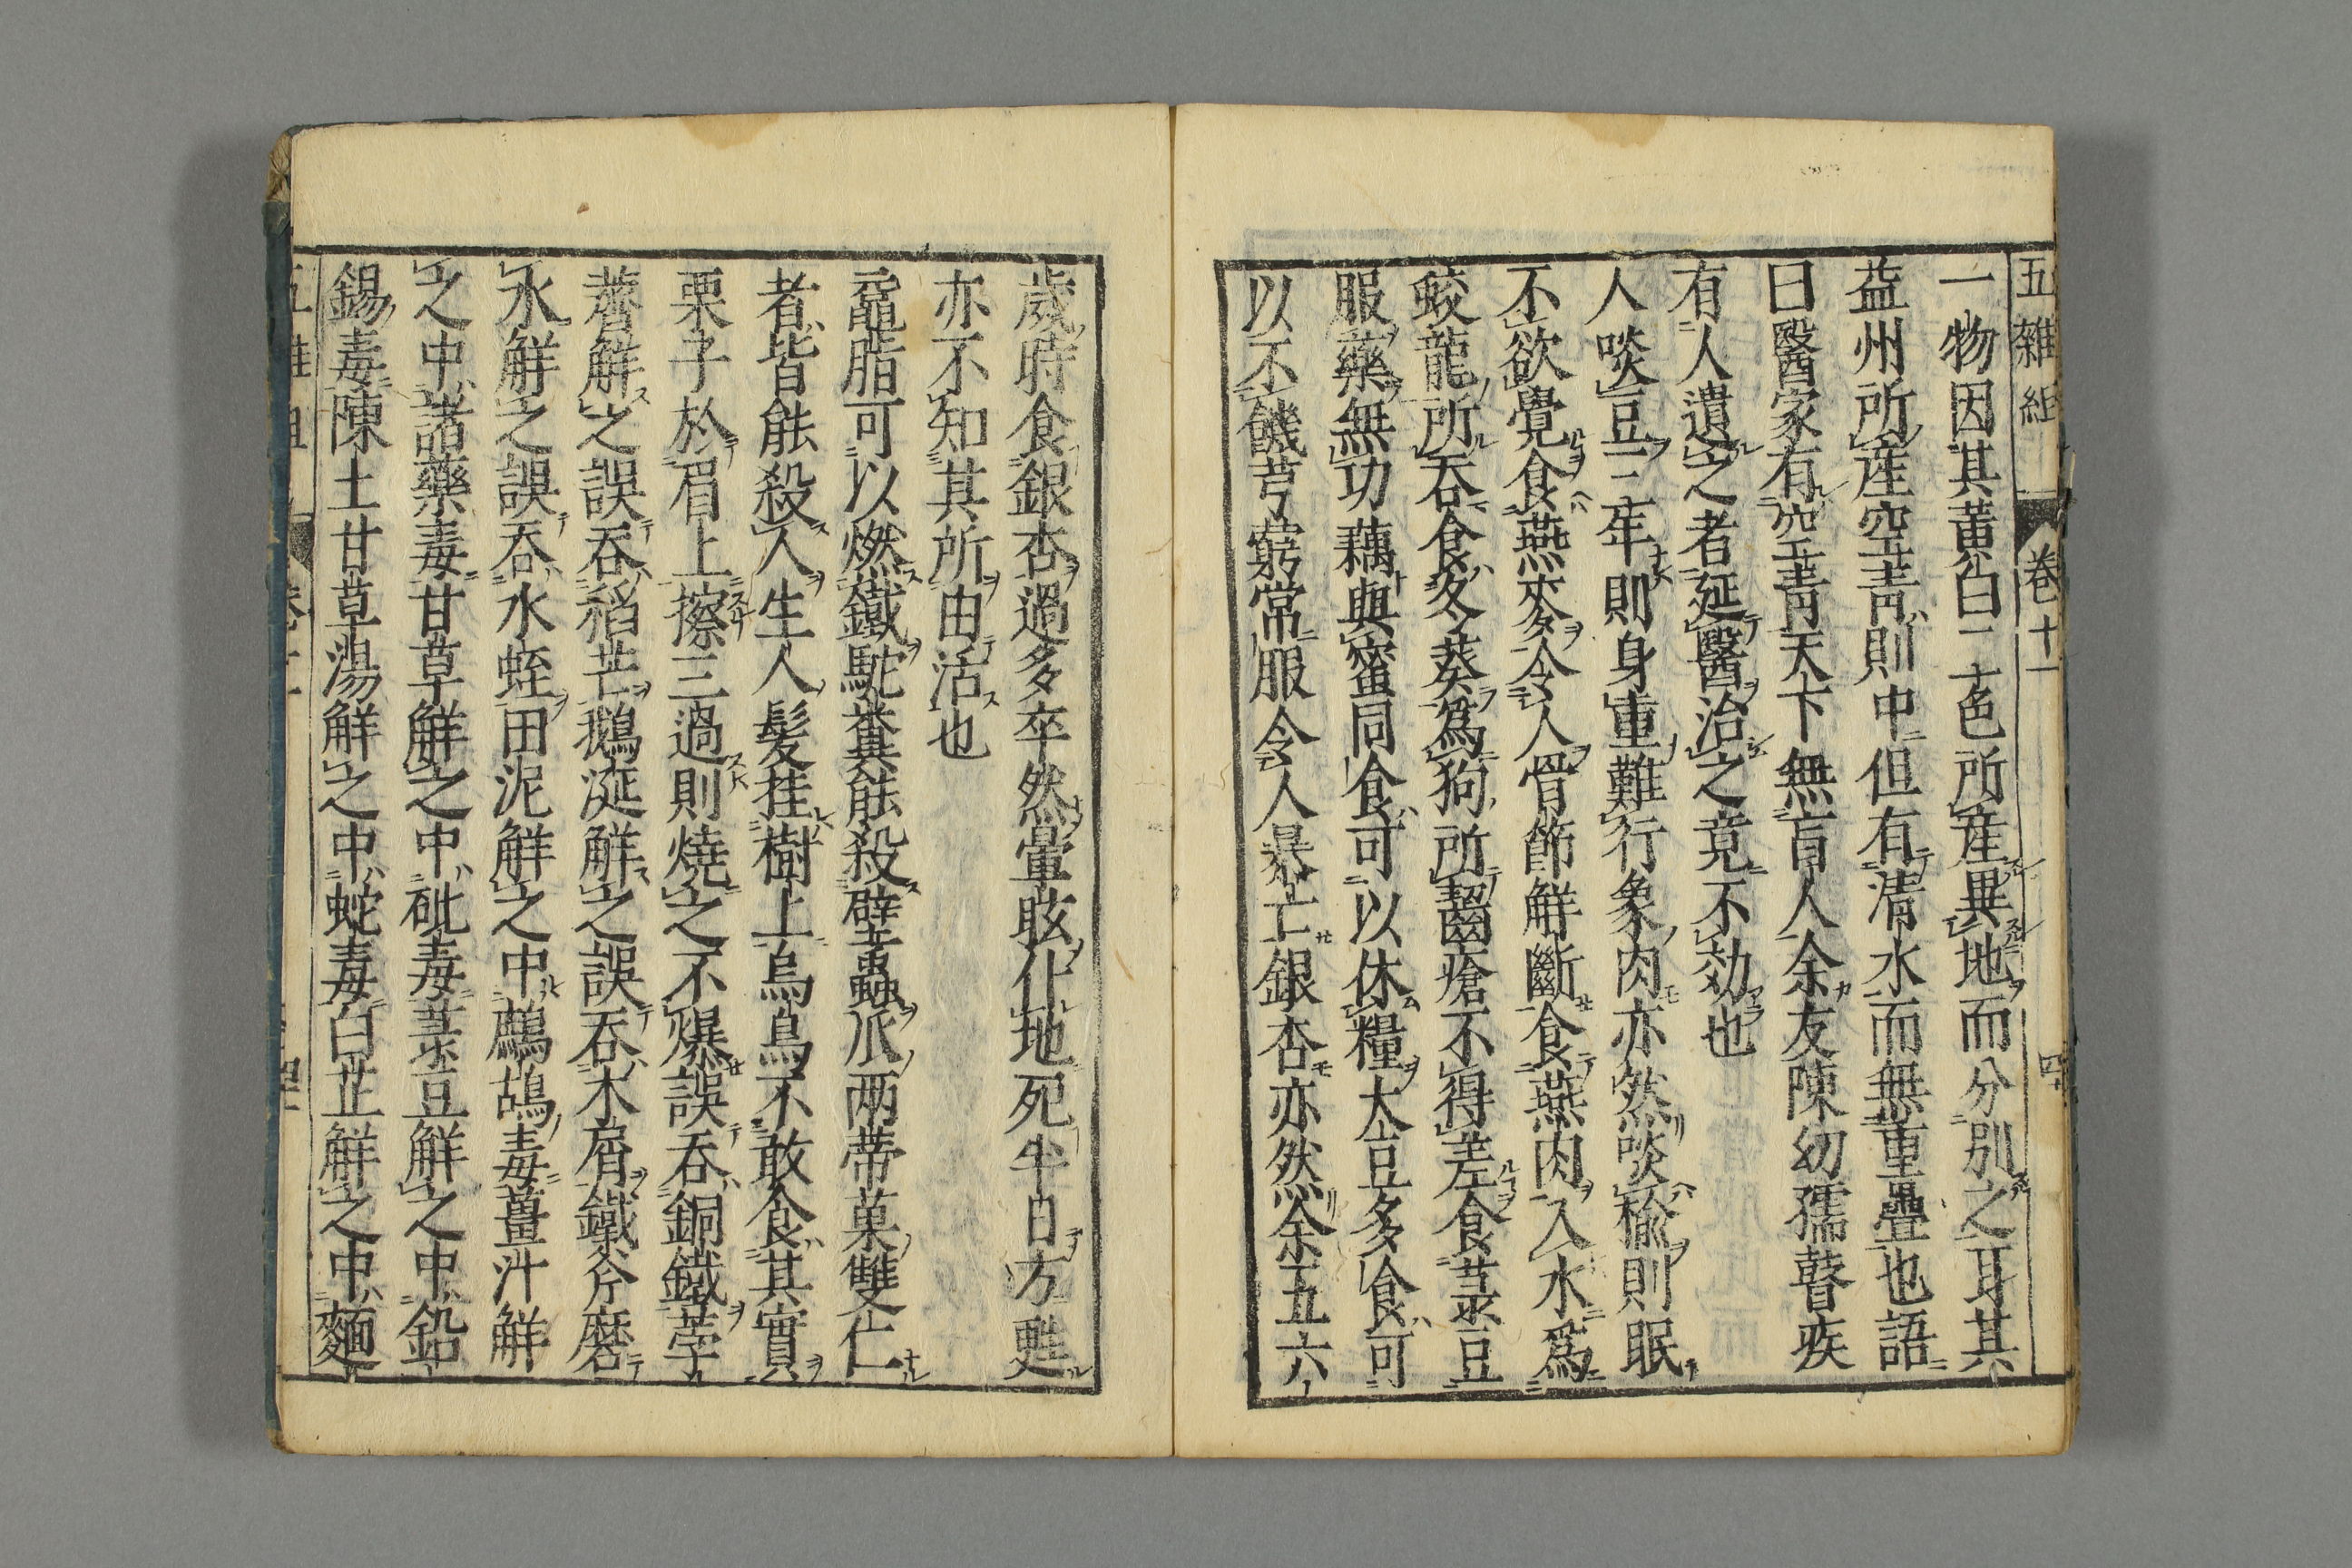 五雜組 卷十一 四十
一物因其黃白二色所產異地而分別之耳其
益州所產空青則中但有清水而無重疊也語
曰醫家有空青天下無盲人余友陳幼孺瞽疾
有人遺之者延醫治之竟不効也
人啖豆三年則身重難行象肉亦然啖榆則眠
不欲覺食燕麥令人骨節解斷食燕肉入水爲
蛟龍所吞食冬葵爲狗所齧瘡不得差食菉豆
服藥無功藕與蜜同食可以休糧大豆多食可
以不饑芎藭常服令人暴亡銀杏亦然余五六
歲時食銀杏過多卒然暈眩仆地死半日方甦
亦不知其所由活也
黿脂可以燃鐵駝糞能殺壁蝨瓜兩蒂菓雙仁
者皆能殺人生人髮挂樹上烏鳥不敢食其實
栗子於眉上擦三過則燒之不爆誤吞銅鐵荸
薺解之誤吞稻芒鵝涎解之誤吞木屑鐵斧磨
水解之誤吞水蛭田泥解之中鷓鴣毒薑汁解
之中諸藥毒甘草解之中砒毒菉豆解之中鉛
錫毒陳土甘草湯解之中蛇毒白芷解之中麵